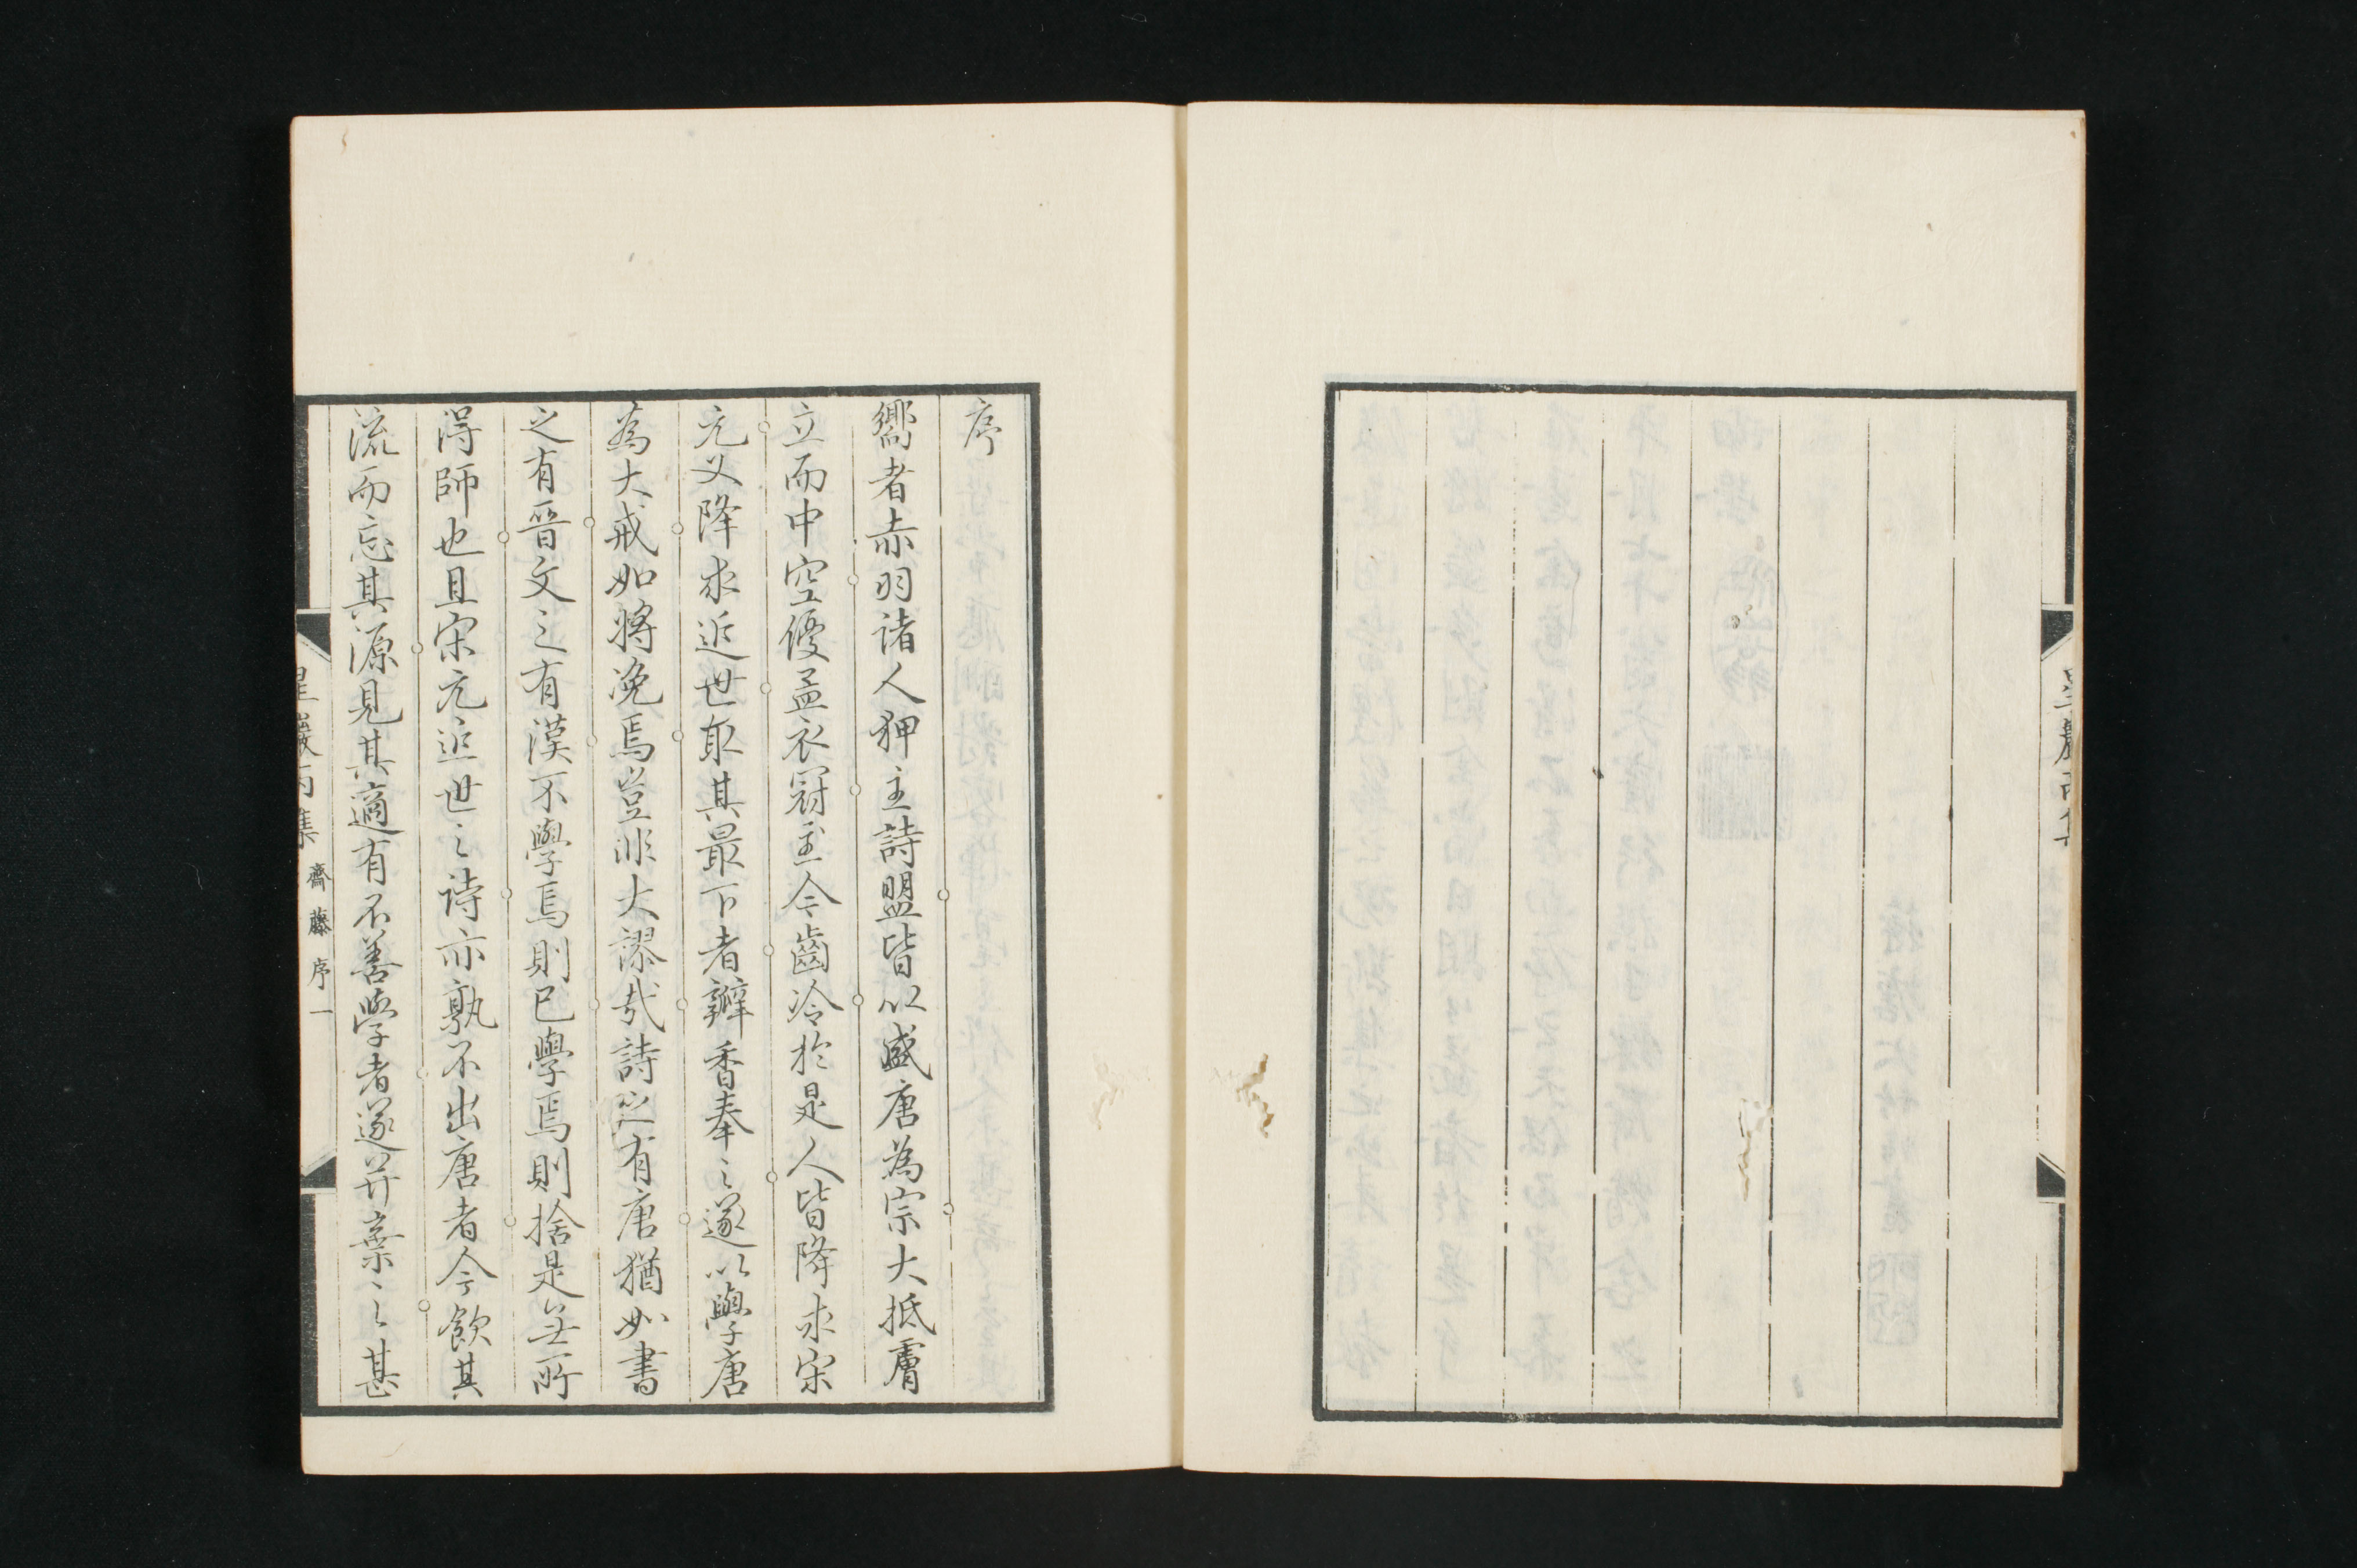 序
嚮者赤羽諸人狎主詩盟皆以盛唐為宗大抵膚
立而中空優孟衣冠至今齒冷於是人皆降求宋
元又降求近世取其最下者瓣香奉之遂以學唐
為大戒如將浼焉豈非大謬哉詩之有唐猶如書
之有晉文之有漢不學焉則已學焉則捨是無所
得師也且宋元近世之詩亦孰不出唐者今飲其
流而忘其源見其適有不善學者遂并棄之甚
星巖丙集 齋藤序 一